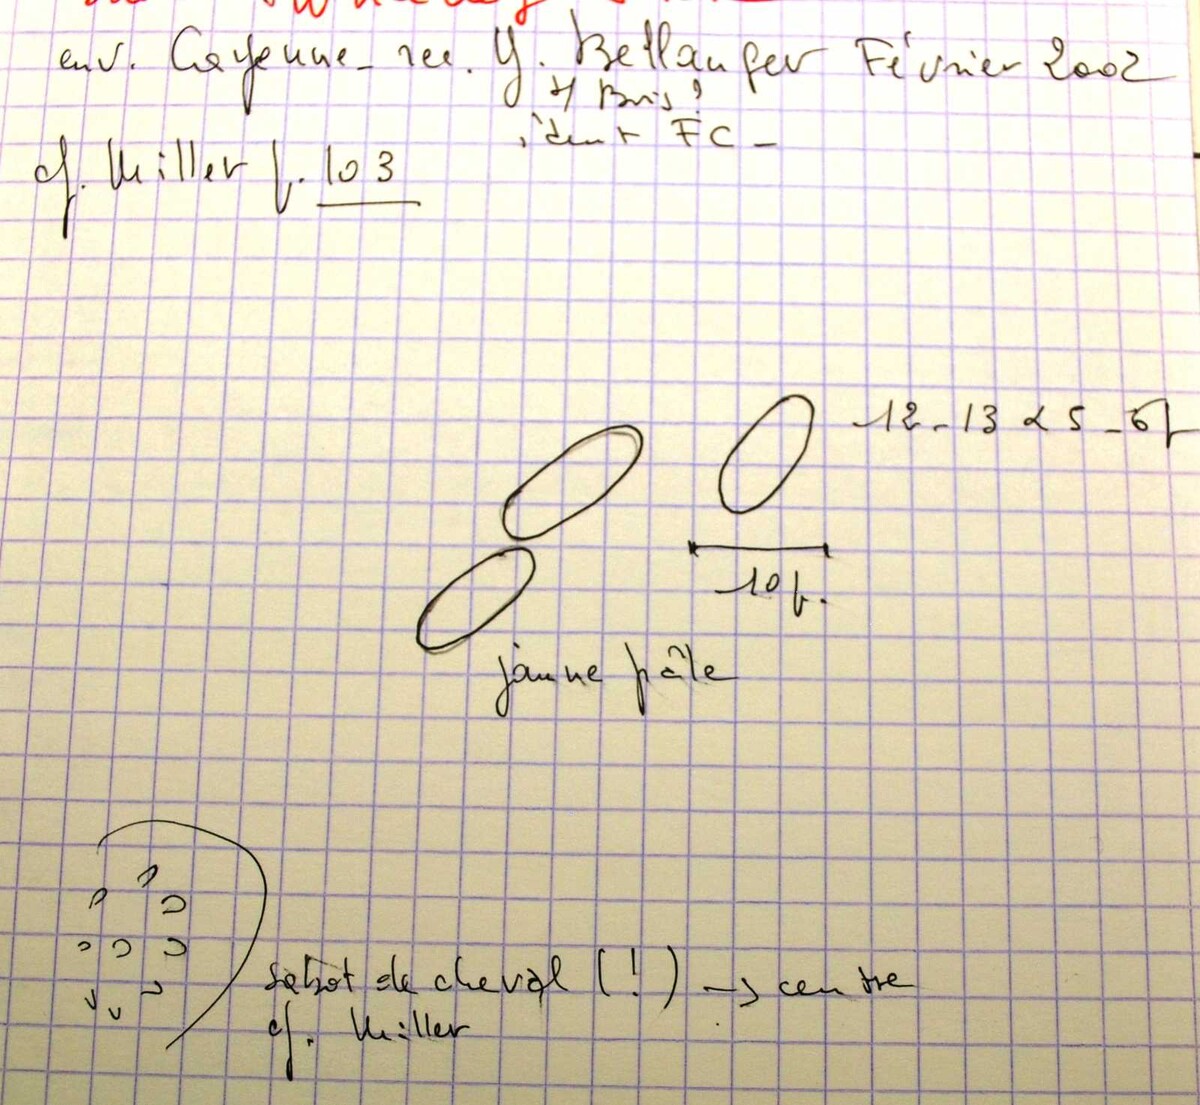 env. Cayenne - rec. Y. Bellanger Février 2002
s/ Bois ?
ident FC -
cf. Miller p. 103
12 - 13 x 5 - 6 µ
10 µ.
jaune pâle
sabot de cheval (!) → centre
cf. Miller